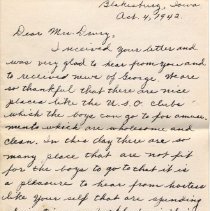 Blakesburg, Iowa
Oct. 4, 1942.
Dear Mrs Drury,
I received your letter and
was very glad to hear from you and
to received news of George. We are
so thankful that there are nice
places like the U.S.O clubs
which the boys can go to for amuse-
ments which are wholesome and
clean. In this day there are so
many place that are not fit
for the boys to go to that it is
a pleasure to hear from hostess
like your self that are spending